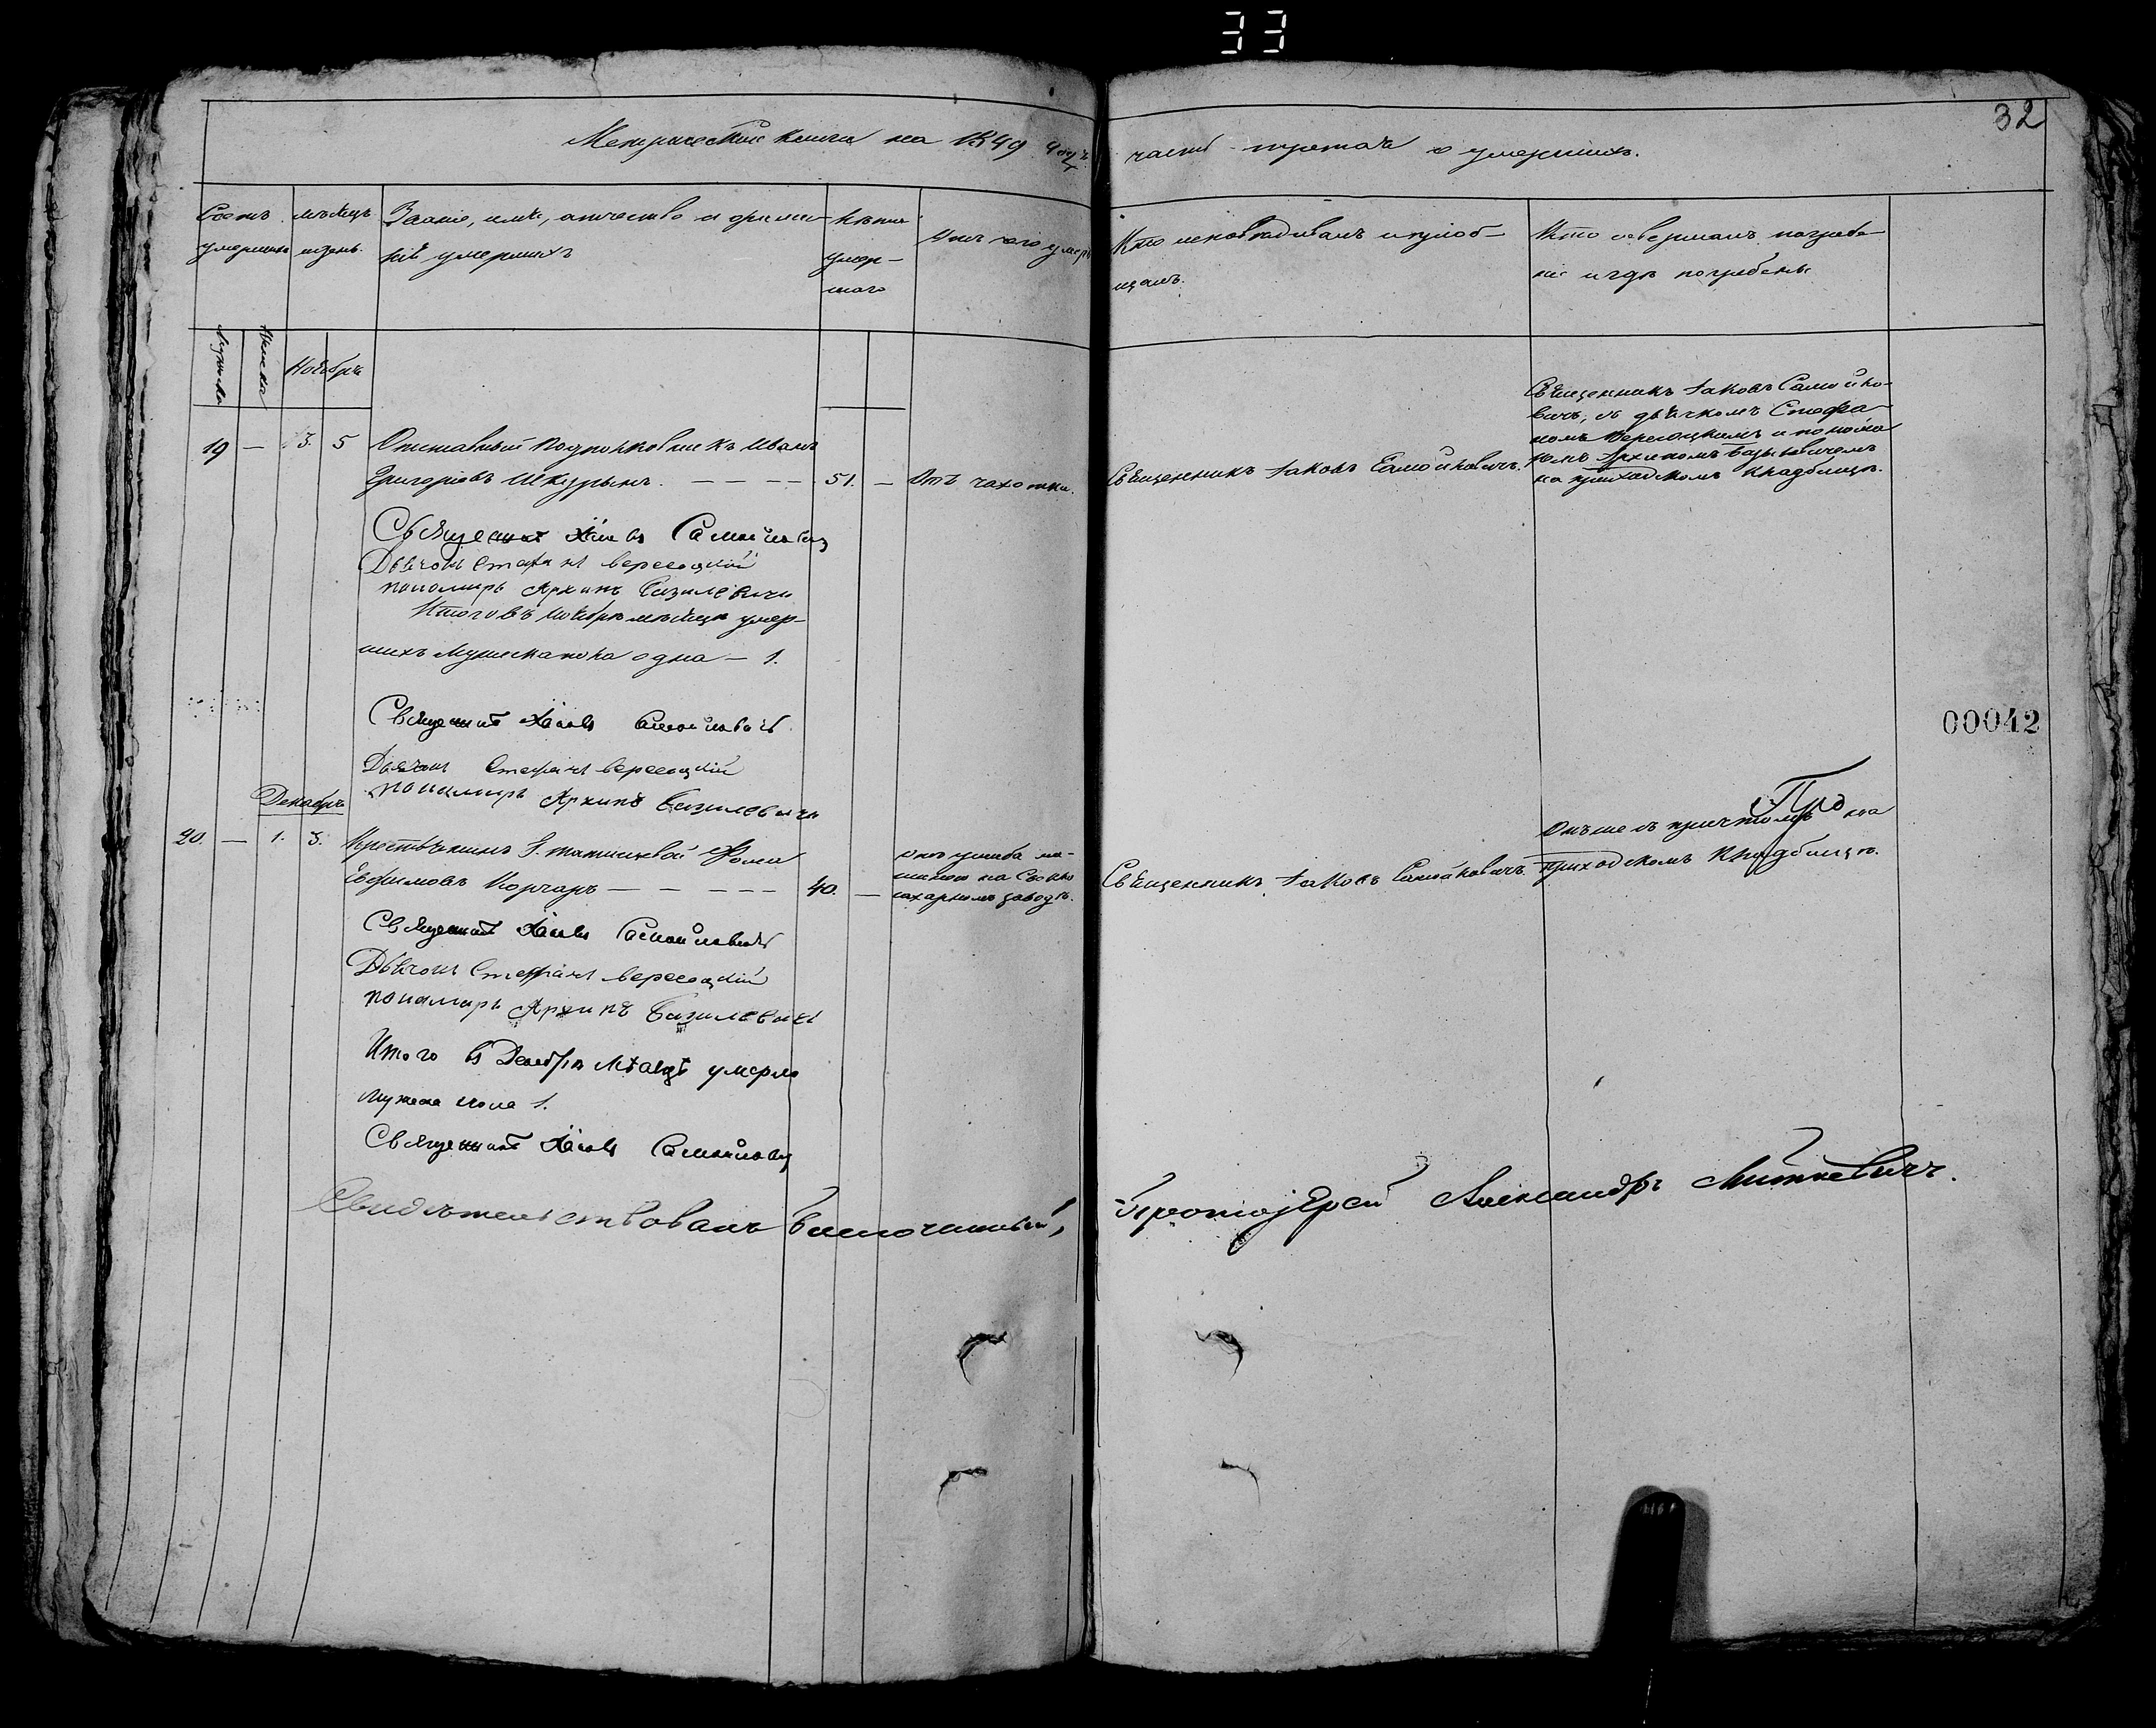 33
32
Метрической книги на 1849 годъ
часть третая о умершихъ.
Счетъ умершихъ
мѣсяцъ и день.
Званіе, имя, отчество и фамилія умершихъ
Лѣта умер-
шаго
Отъ чего умеръ
Кто исповѣдывалъ и пріоб-
щалъ.
Кто совершалъ погребе-
ніе и гдѣ погребены
Мужеска
Женска
Ноябрь
19 — 3. 5 Отставный подполковникъ Иванъ
Григоріевъ Шкурынъ. — — — — 51. — Отъ чахотки.
Священникъ Іаковъ Самойловичъ.
Священникъ Іаковъ Самойло-
вичъ, съ дьячкомъ Стефа-
номъ Вересоцкимъ и понома-
ремъ Архипомъ Базилевичемъ
на приходскомъ кладбищѣ.
Священникъ Іаковъ Самойловичъ
Дьячокъ Стефанъ Вересоцкій
пономарь Архипъ Базилевичъ
Итого въ Ноябрѣ мѣсяцѣ умер-
шихъ мужеска пола одна — 1.
Священникъ Іаковъ Самойловичъ
Дьячокъ Стефанъ Вересоцкій
пономарь Архипъ Базилевичъ
00042
Декабрь
20. — 1. 3. Крестьянинъ Фома
Ефимовъ Корчаръ — — — — — 40. —
отъ ушиба ма-
шиною на
сахарномъ заводѣ.
Священникъ Іаковъ Самойловичъ.
Онъ же съ причтомъ на
приходскомъ кладбищѣ.
Про
Священникъ Іаковъ Самойловичъ
Дьячокъ Стефанъ Вересоцкій
пономарь Архипъ Базилевичъ
Итого въ Декабрѣ мѣсяцѣ умерло
мужеска пола 1.
Священникъ Іаковъ Самойловичъ
Свидѣтельствовалъ благочинный,
Протоіерей Александръ Миткевичъ.